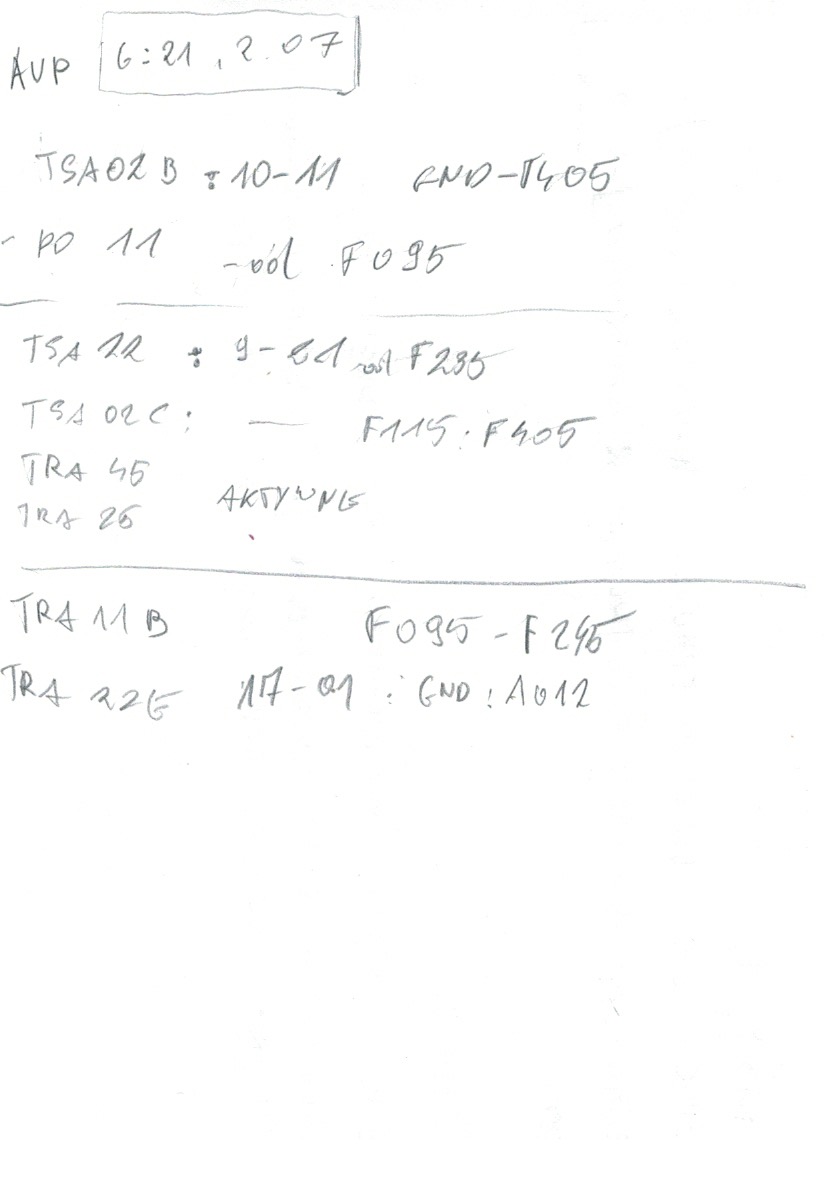 AUP 6:21, 2.07
TSA02B : 10-11 GND-F405
- PO 11 -od F095
TSA 22 : 9- 21 od F285
TSA 02C : — F115 : F405
TRA 45
AKTYWNE
TRA 26
TRA 11B F095 - F245
TRA 22E 17-01 : GND : A012